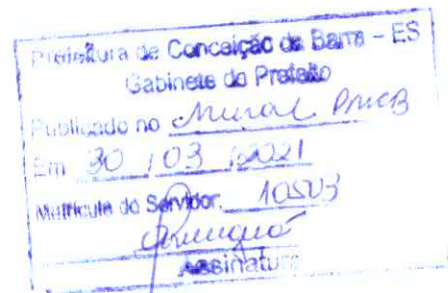 Prefeitura de Conceição da Barra – ES
Gabinete do Prefeito
Publicado no Mural PMCB
Em 30 / 03 / 2021
Matrícula do Servidor. 10503
Assinatura